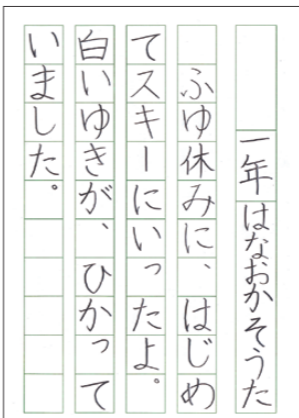 一年 はなおかそうた
ふゆ休みに、はじめ
てスキーにいったよ。
白いゆきが、ひかって
いました。